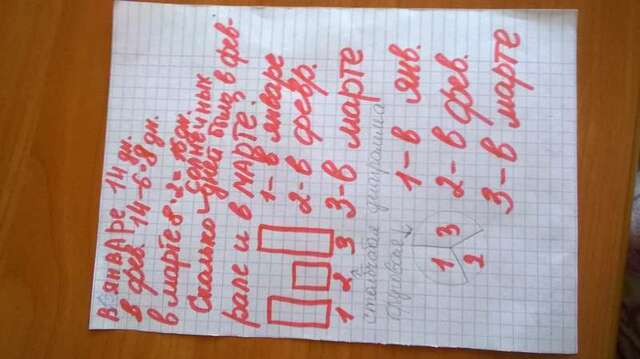 В ЯНВАРЕ 14 дн.
в фев. 14-6=8 дн.
в марте 8·2=16 дн.
Сколько солнечных
дней был, в фев-
рале и в МАРТЕ.
1- в январе
2- в февр.
3-в марте
1 2 3
столбовая диаграмма
круговая
1 3
2
1-в янв.
2-в фев.
3-в марте